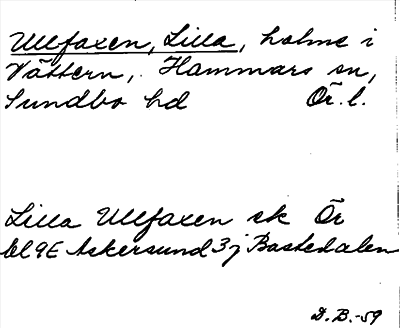 Ullfaxen, Lilla, holme i
Vättern, Hammars sn,
Sundbo hd Ör. l.
Lilla Ullfaxen ek Ör
bl 9E Askersund 3 j Bastedalen
D. B. -59